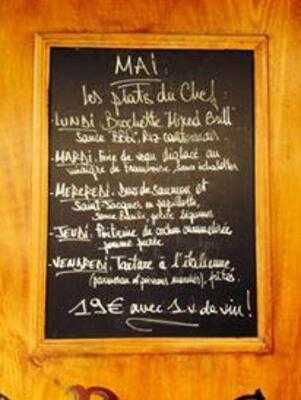 MAI
Les plats du Chef :
- LUNDI. Brochette Mixed Grill
Sauce BBQ, Riz cantonnais
- MARDI. Foie de veau déglacé au
vinaigre de framboise, sauce échalottes
- MERCREDI. Duo de saumon et
Saint-Jacques en papillotte,
petits légumes
- JEUDI. Poitrine de cochon caramélisée
pomme purée
- VENDREDI. Tartare à l'italienne,
(parmesan et poivrons marinés), frites.
19€ avec 1 v. de vin !